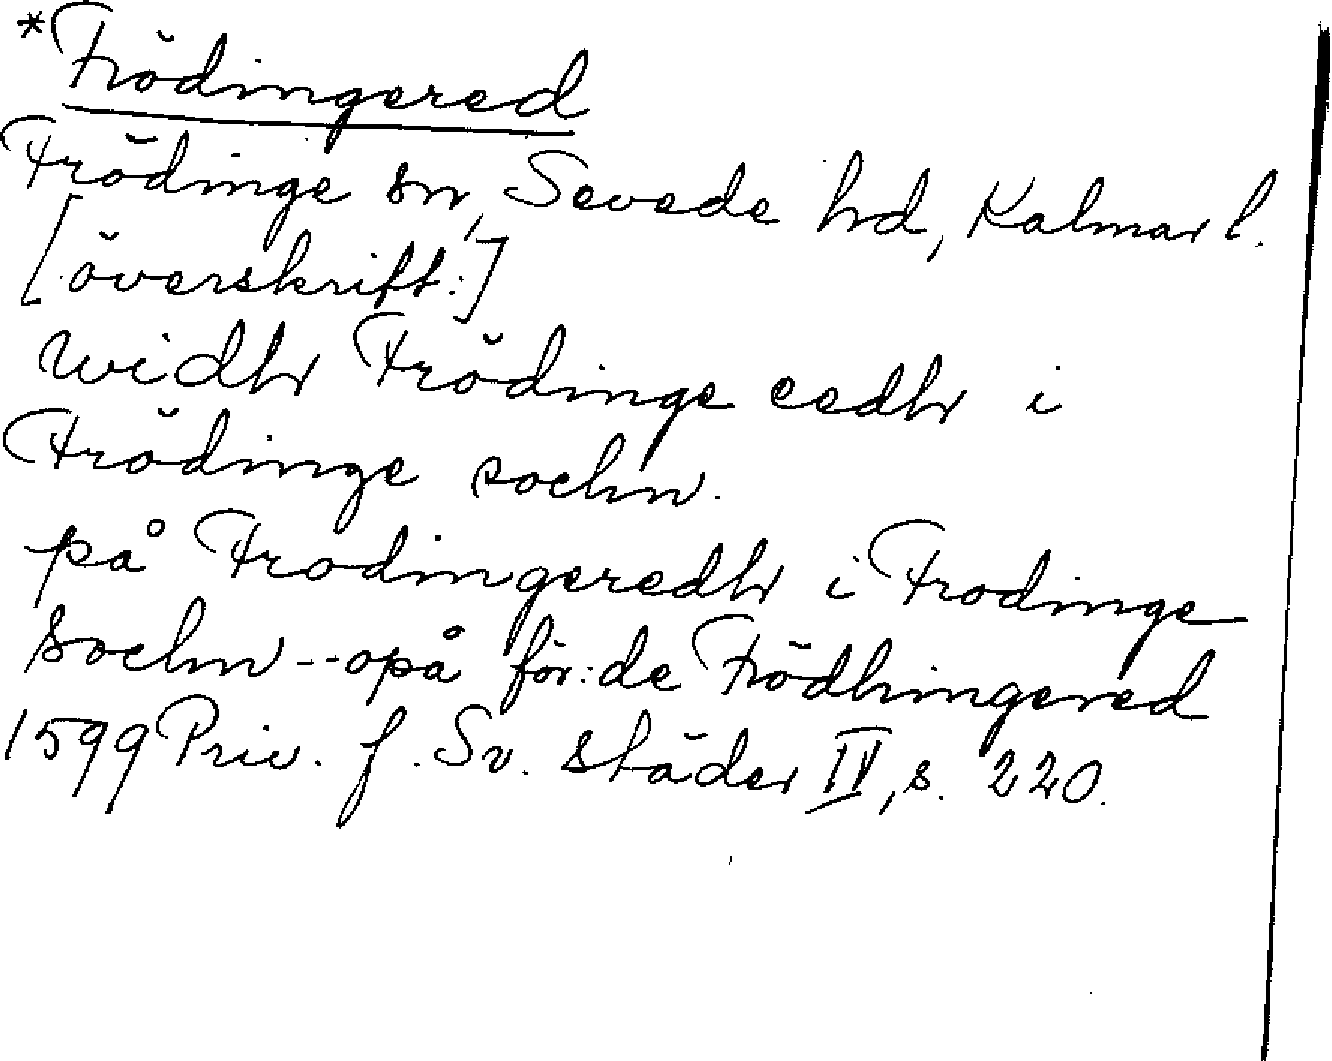 *Frödingered
Frödinge sn, Sevede hd, Kalmar l.
[överskrift:]
widhr Frödinge eedhr i
Frödinge sochn.
på Frodingeredhr i Frodinge
sochn--opå för:de Frödhingered
1599 Priv. f. Sv. städer IV, s. 220.